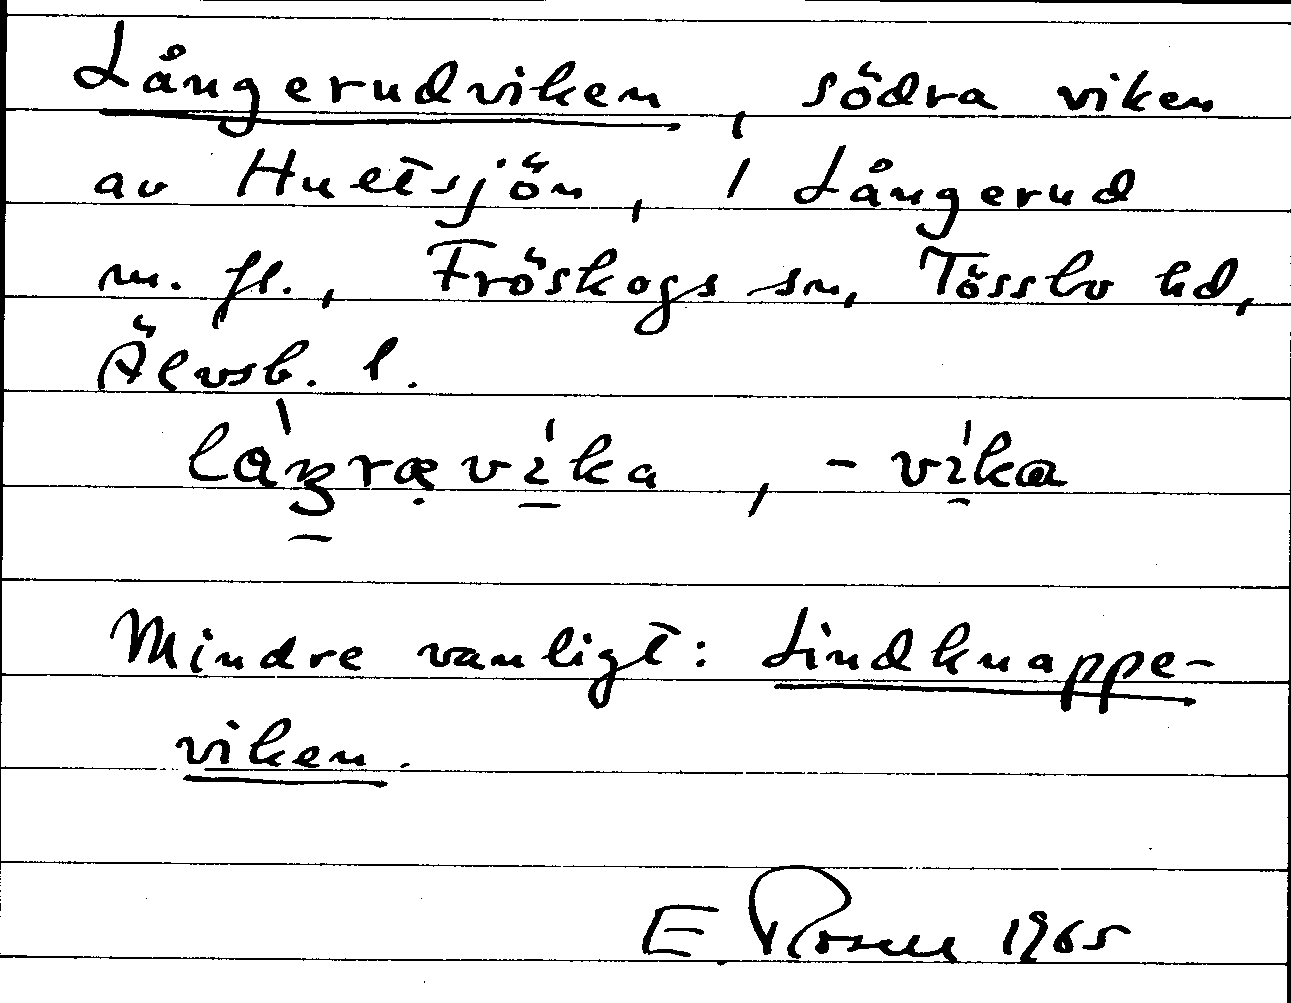 Långerudviken, södra viken
av Hultsjön, 1 Långerud
m. fl., Fröskogs sn, Tössbo hd,
Älvsb. l.
Mindre vanligt: Lindknappe-
viken.
E. Rosell 1965